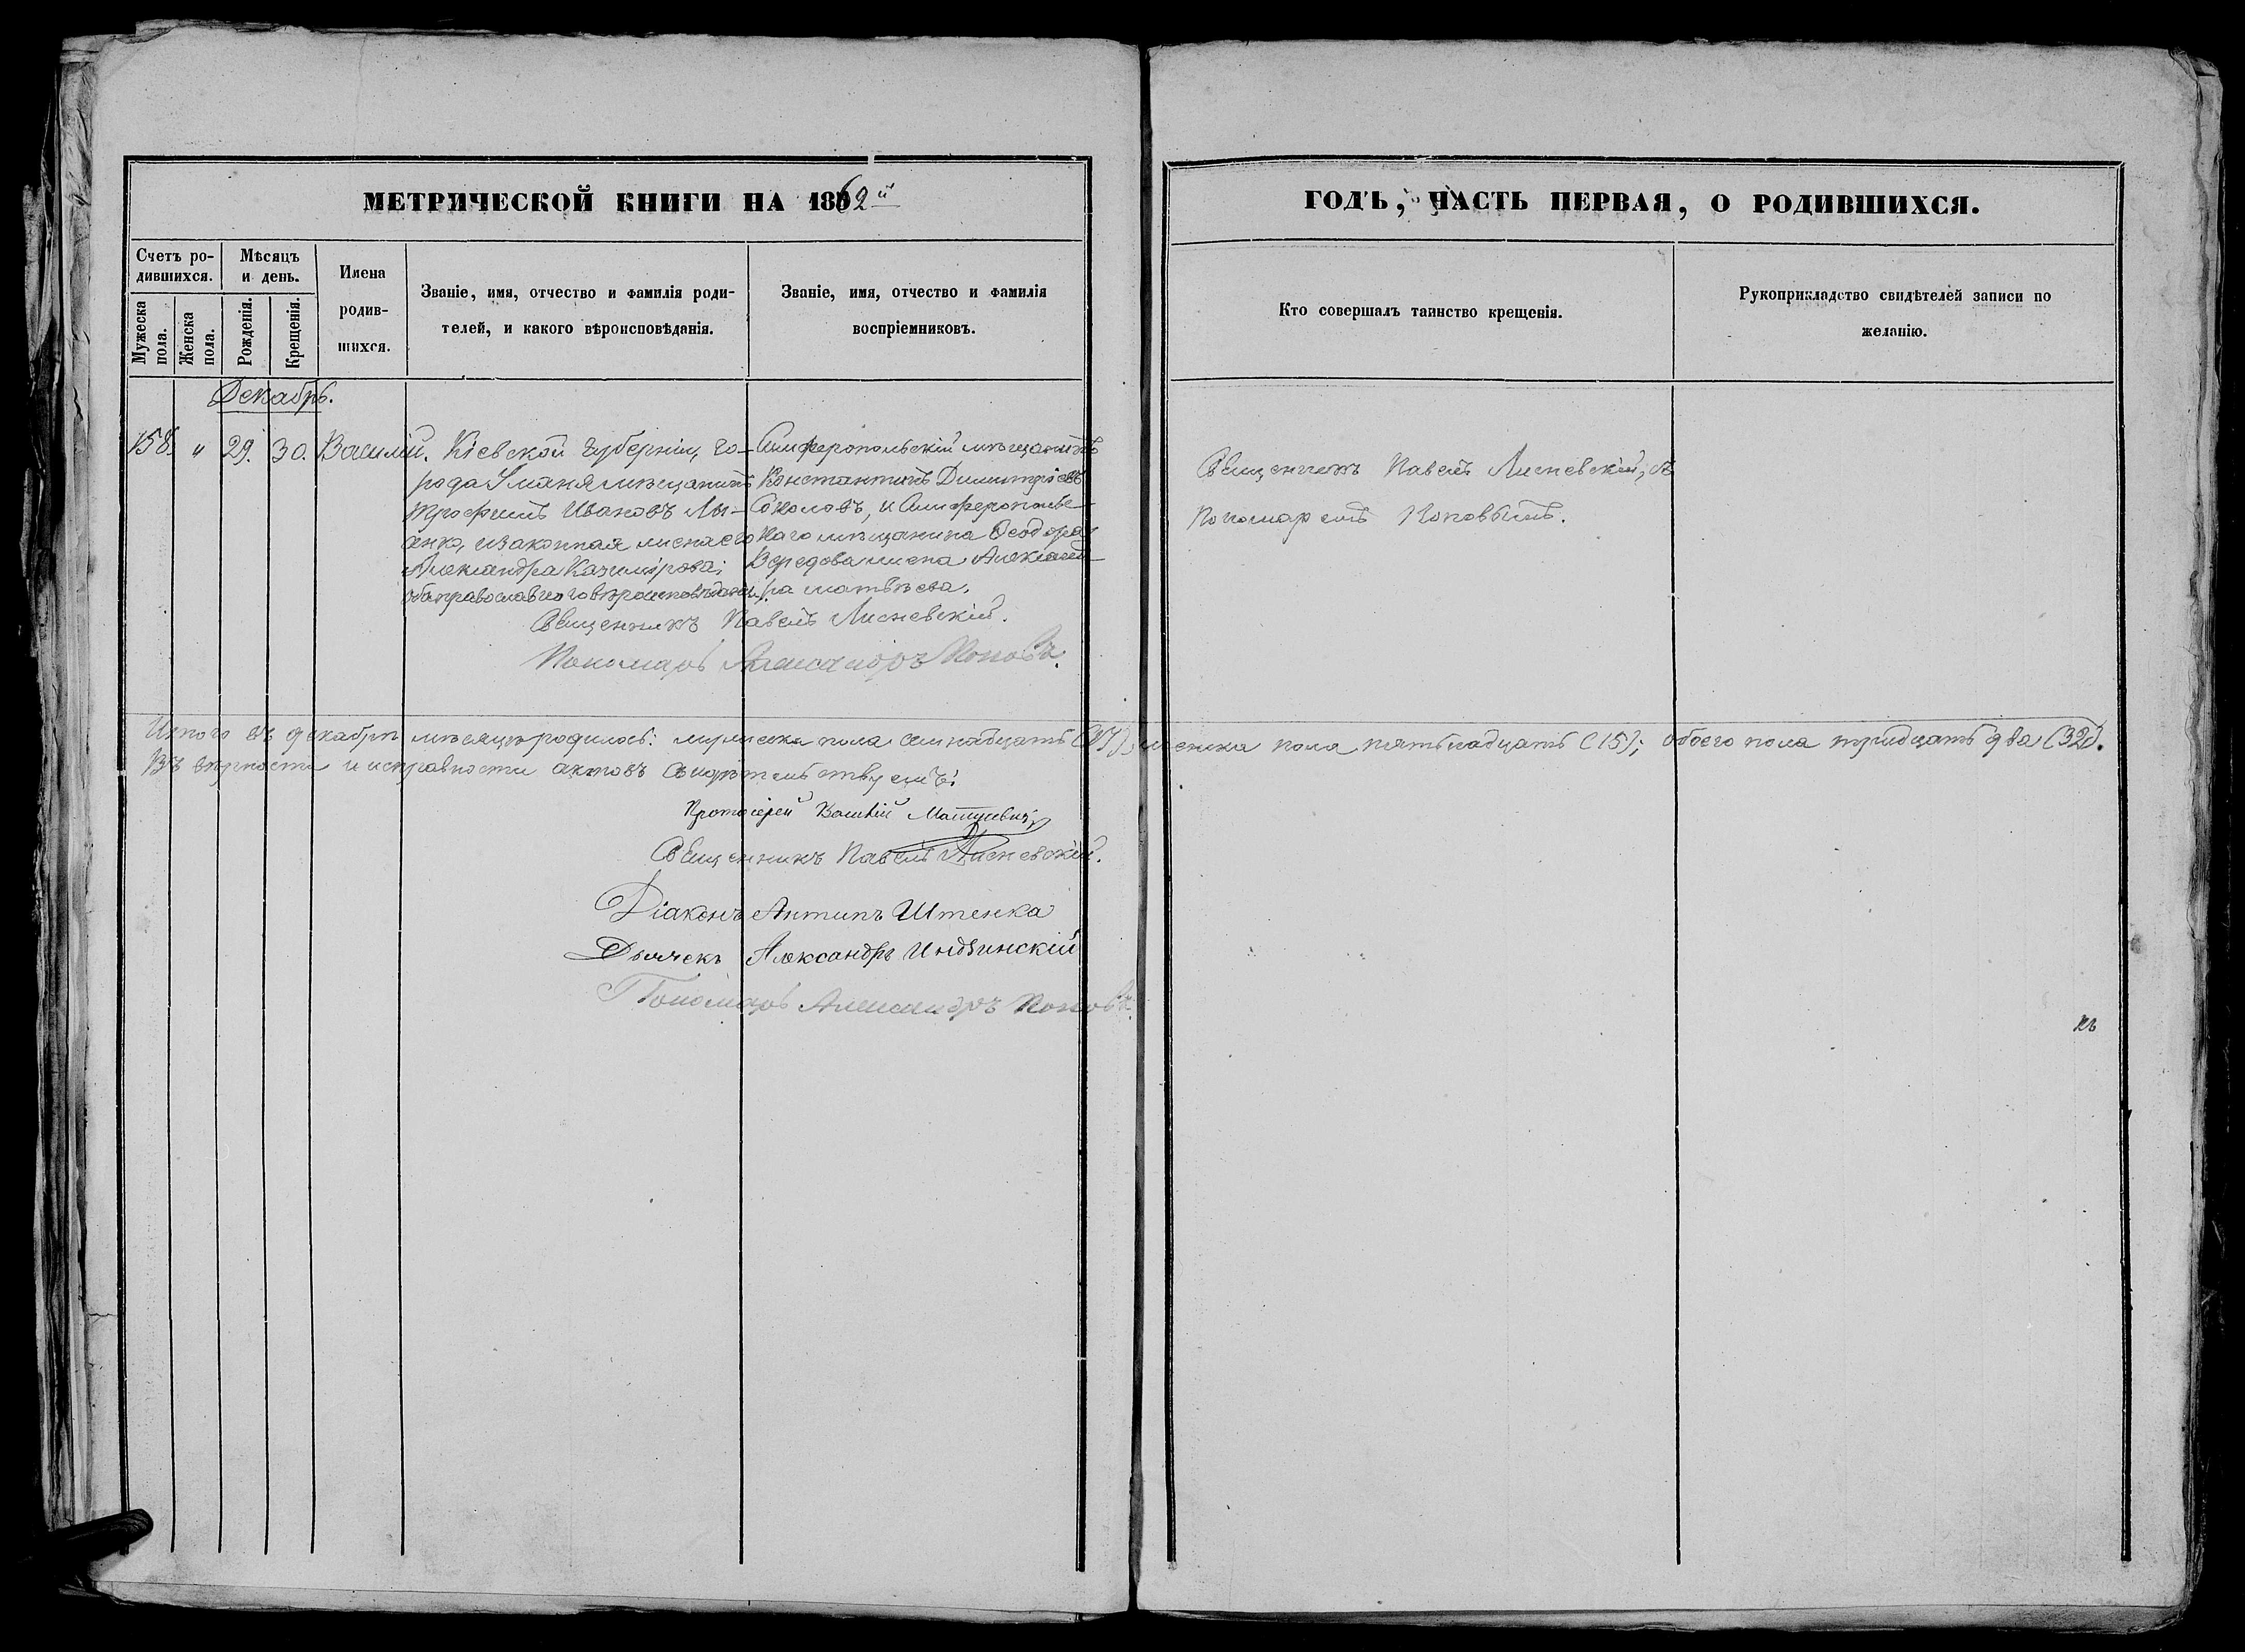 МЕТРИЧЕСКОЙ КНИГИ НА 1862й
ГОДЪ, ЧАСТЬ ПЕРВАЯ, О РОДИВШИХСЯ.
Счетъ ро-
дившихся.
Мужеска
пола.
Женска
пола.
Мѣсяцъ
и день.
Рожденія.
Крещенія.
Имена
родив-
шихся.
Званіе, имя, отчество и фамилія роди-
телей, и какого вѣроисповѣданія.
Званіе, имя, отчество и фамилія
воспріемниковъ.
Кто совершалъ таинство крещенія.
Рукоприкладство свидѣтелей записи по
желанію.
Декабрь.
158. " 29. 30. Василій.
Кіевской губерніи, го-
рода Уманя мѣщанинъ
Трофимъ Ивановъ Лы-
сенко, и законная жена его
Александра Казимірова;
оба православнаго вѣроисповѣданія.
Симферопольскій мѣщанинъ
Константинъ Димитріевъ
Соколовъ, и Симферополь-
скаго мѣщанина Ѳеодора
жена Александ-
ра Матвѣева.
Священникъ Павелъ Лисневскій, съ
Пономаремъ Поповымъ.
Священникъ Павелъ Лисневскій.
Пономарь Александръ Поповъ.
Итого въ декабрѣ мѣсяцѣ родилось: мужеска пола семнадцать (17), женска пола пятьнадцать (15); обоего пола тридцать два (32).
Въ вѣрности и исправности актовъ свидѣтельствуемъ:
Протоіерей Василій
Священникъ Павелъ Лисневскій.
Діаконъ Антипъ Штенка
Дьячекъ Александръ Индзинскій
Пономарь Александръ Поповъ.